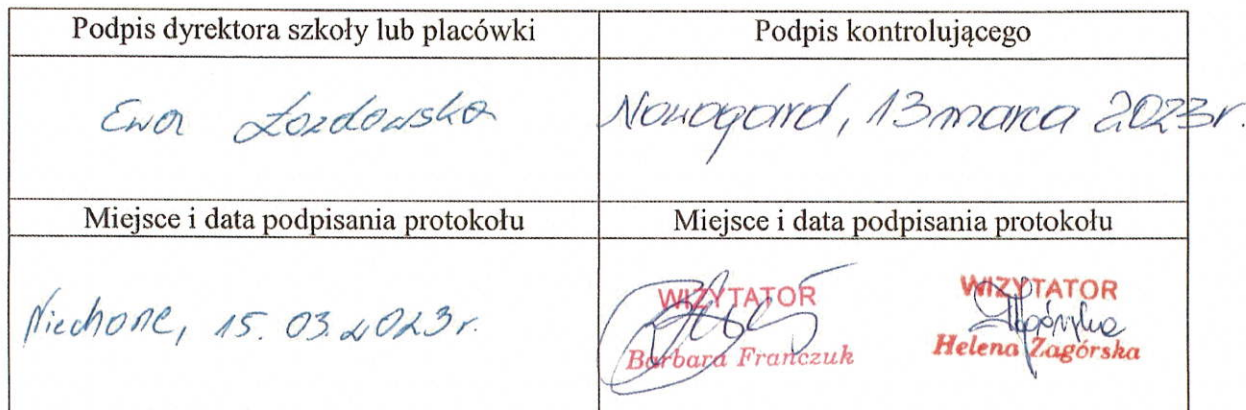 Podpis dyrektora szkoły lub placówki
Podpis kontrolującego
Ewa Łozdowska
Nowogard, 13 marca 2023r.
Miejsce i data podpisania protokołu
Miejsce i data podpisania protokołu
Niechone, 15. 03. 2023r.
WIZYTATOR
Barbara Franczuk
WIZYTATOR
Helena Zagórska